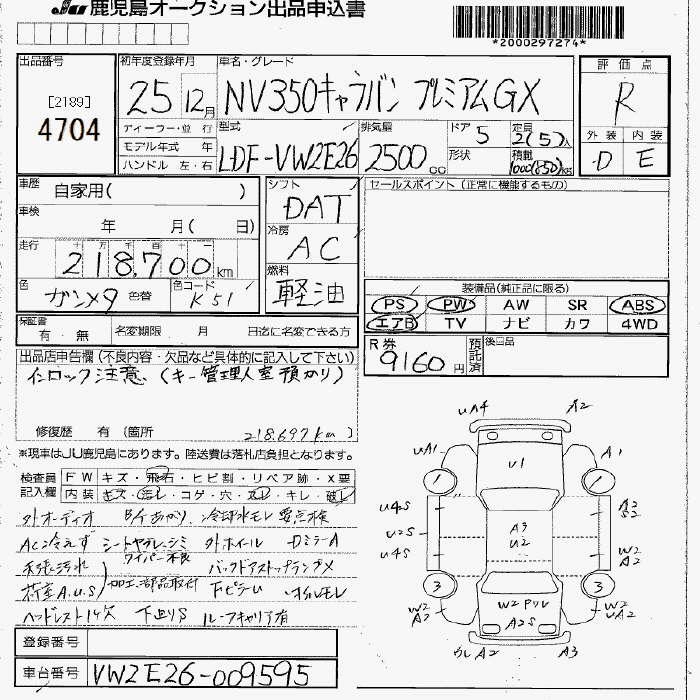 JU 鹿児島オークション出品申込書
*2000297274*
出品番号
[2189]
4704
初年度登録年月
25年12月
車名・グレード
NV350キャラバン プレミアムGX
評価点
R
外装 内装
D E
ディーラー・並行
モデル年式 年
ハンドル 左・右
型式
LDF-VW2E26
排気量
2500cc
ドア 5
形状
定員
2(5)人
積載
1000(850)kg
車歴
自家用( )
車検
年 月( 日)
走行
十万千百十一
218,700km
色
ガンメタ 色替
色コード
K51
シフト
DAT
冷房
AC
燃料
軽油
セールスポイント(正常に機能するもの)
装備品(純正品に限る)
PS PW AW SR ABS
エアB TV ナビ カワ 4WD
保証書
有・無
名変期限 月 日迄に名変できる方
R券
9160円
預託済
後日品
出品店申告欄(不良内容・欠品など具体的に記入して下さい)
インロック注意 (キー管理人室預かり)
修復歴 有(箇所 218,697km)
※現車はJU鹿児島にあります。陸送費は落札店負担となります。
検査員記入欄
FWキズ・飛石・ヒビ割・リペア跡・X要
内装キズ・汚レ・コゲ・穴・スレ・キレ・破レ
外オーディオ 冷却水モレ要点検
AC冷えず 外ホイール DミラーA
ワイパー不良
荷室A.U.S 加工部品取付
ヘッドレスト1ケ欠 下廻りS ルーフキャリア有
登録番号
車台番号 VW2E26-009595
UA4 A2
UA1 A1
U1
1 1
U4S A3
S2
U2S A3
U2
U4S W2
A2
3 3
W2
A2
W2 PリV
A2S
W2
UA2
A2 A3